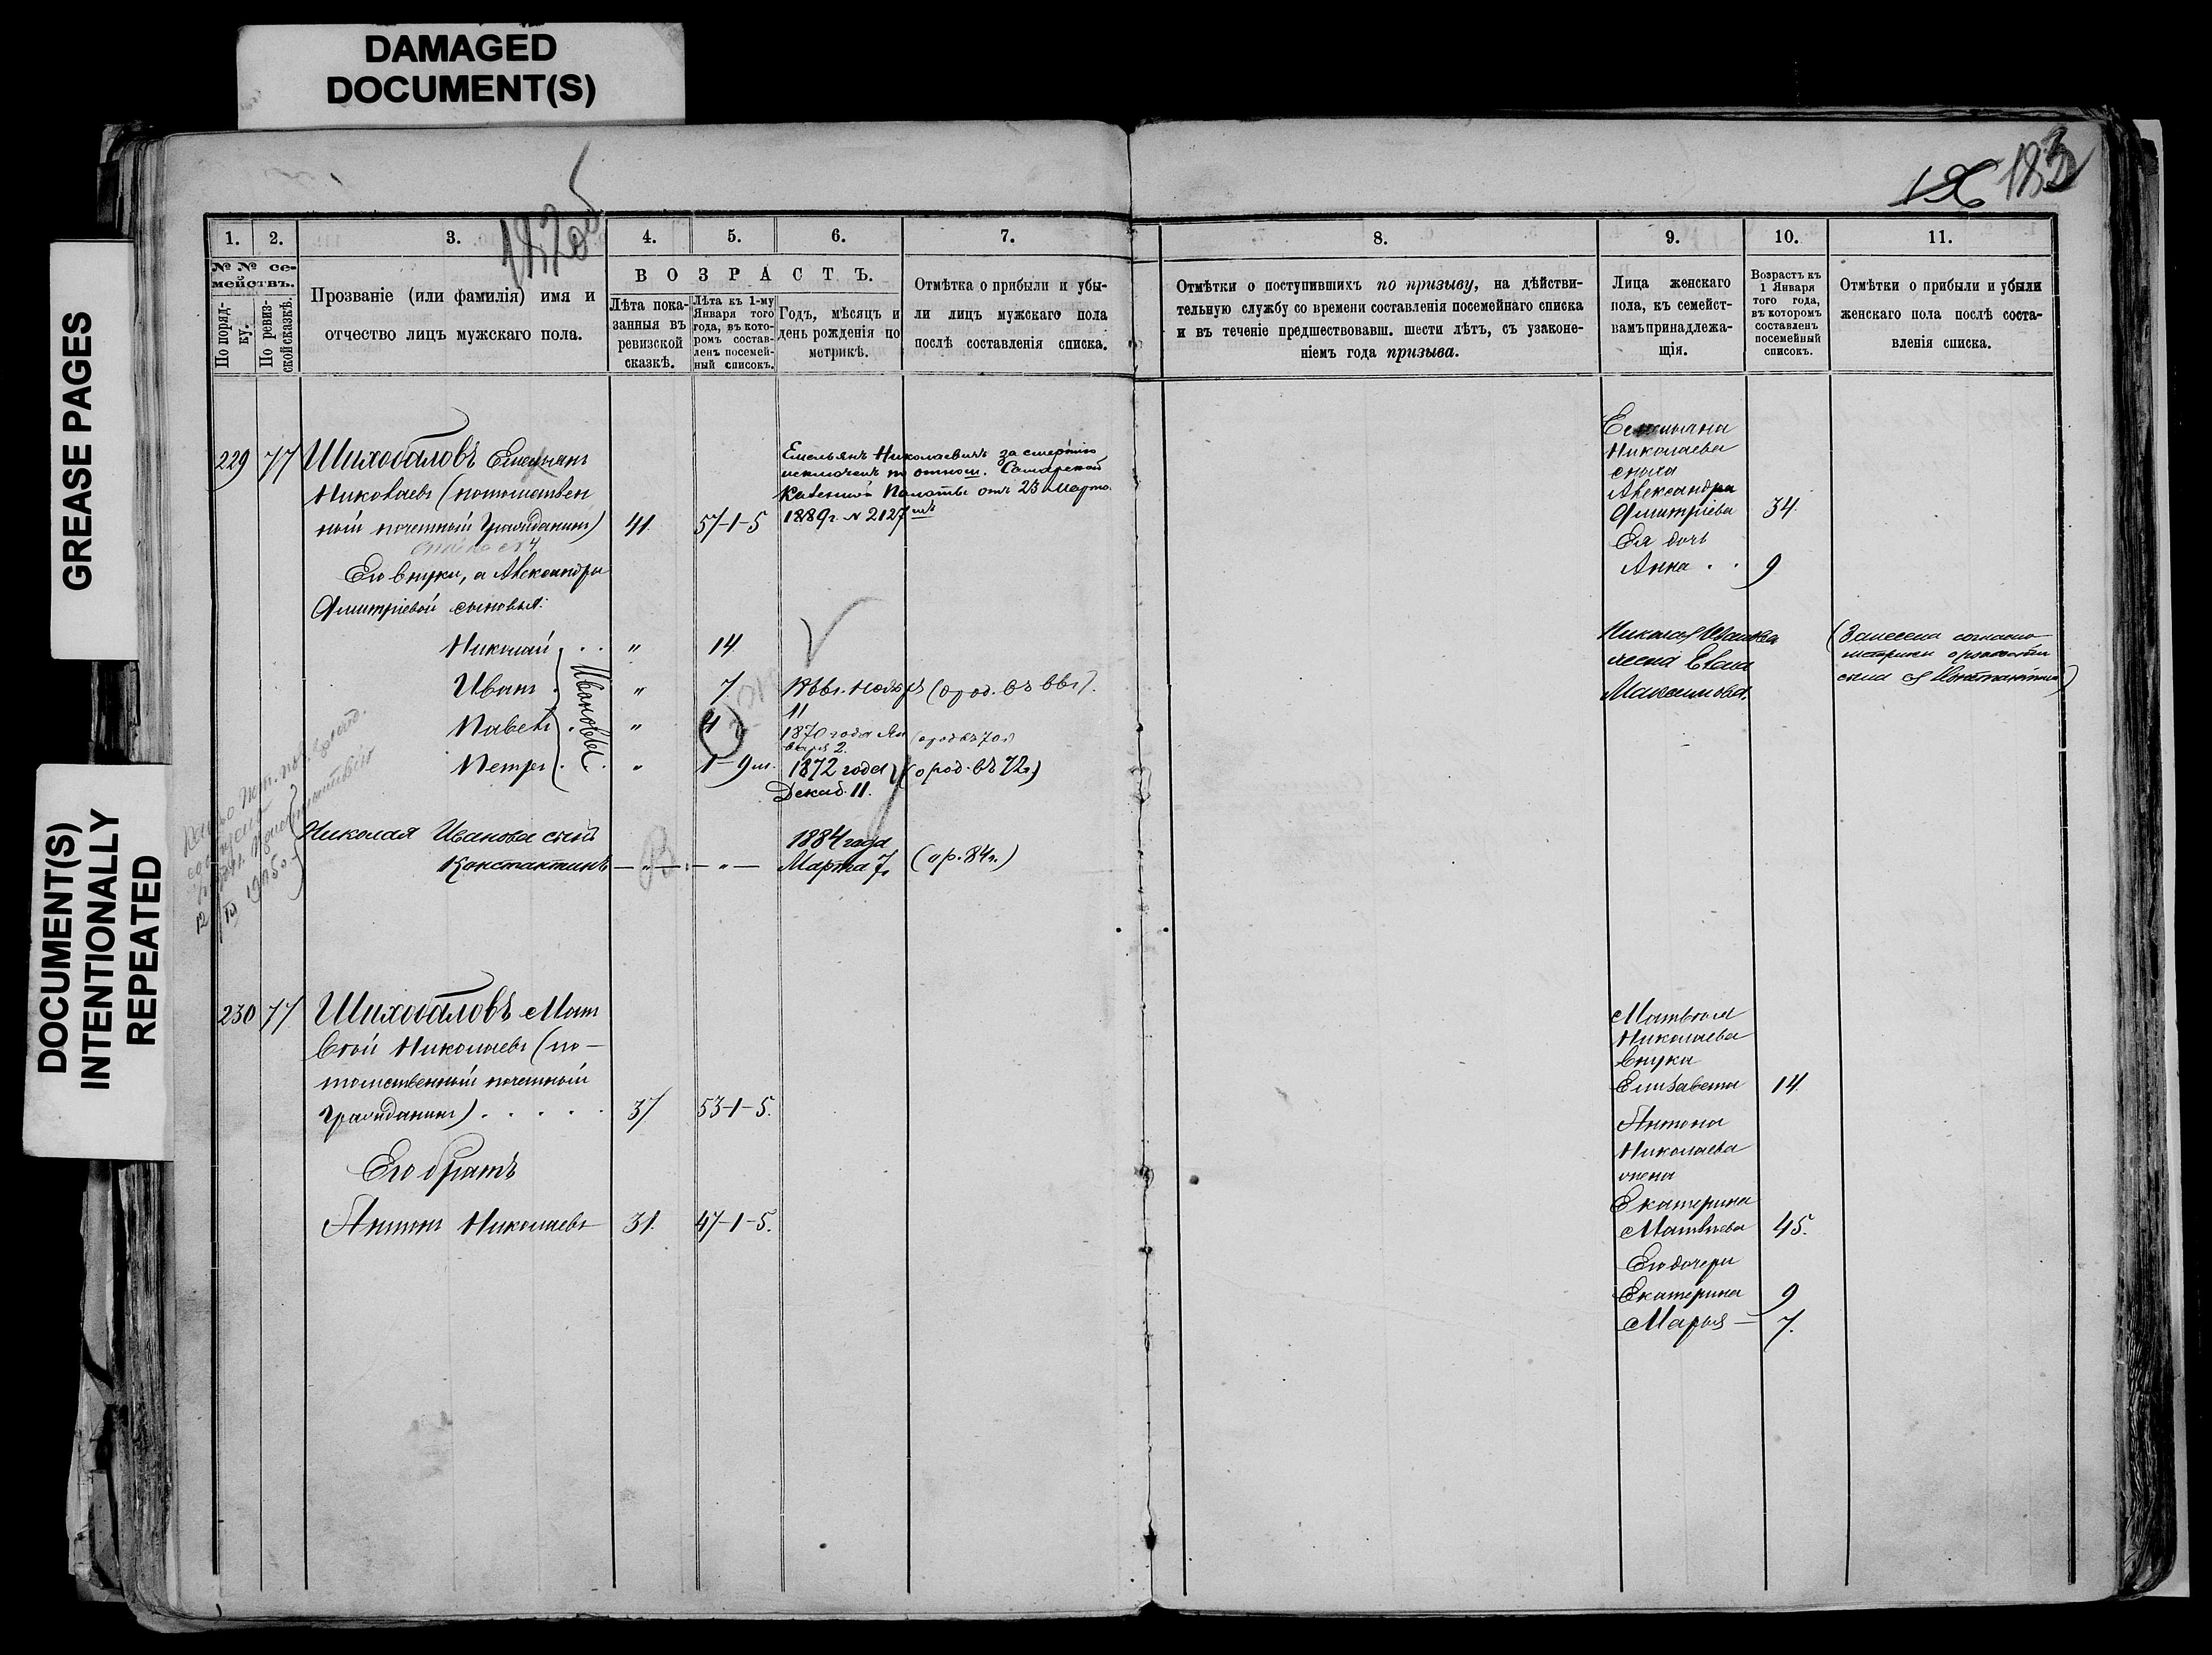 DAMAGED
DOCUMENT(S)
GREASE PAGES
DOCUMENT(S)
INTENTIONALLY
REPEATED
182об
183
1. 2. 3. 4. 5. 6. 7.
№№ семействъ.
По порядку.
По ревизской сказкѣ.
Прозваніе (или фамилія) имя и
отчество лицъ мужскаго пола.
ВОЗРАСТЪ.
Лѣта показанныя въ
ревизской
сказкѣ.
Лѣта къ 1-му
Января того
года, въ кото-
ромъ состав-
ленъ посемей-
ный списокъ.
Годъ, мѣсяцъ и
день рожденія по
метрикѣ.
Отмѣтка о прибыли и убы-
ли лицъ мужскаго пола
послѣ составленія списка.
229 77 Шихобаловъ Емельянъ
Николаевъ (потомствен
ный почетный Гражданинъ) 41. 57-1-5
Емельянъ Николаевичъ за смертію
исключенъ по отнош. Самарской
Казенной Палаты отъ 23 Марта
1889 г. № 2127
Его внуки, а Александры
Дмитріевой сыновья:
Николай . . " 14
Иванъ . " 7 (о род. въ 66 г.)
Павелъ . " 4 1870 года Ян
варя 2. (о род въ 70 г)
Петръ . " 1-9 м. 1872 года (о род. въ 72 г.)
Декаб. 11.
Ивановы.
Николая Иванова сынъ 1884 года
Константинъ — " — — " — Марта 7. (о р. 84 г.)
230 77 Шихобаловъ Мат
вѣй Николаевъ (по-
томственный почетный
гражданинъ) . . . . . 37. 53-1-5.
Его братъ
Антонъ Николаевъ 31. 47-1-5.
8. 9. 10. 11.
Отмѣтки о поступившихъ по призыву, на дѣйстви-
тельную службу со времени составленія посемейнаго списка
и въ теченіе предшествовавш. шести лѣтъ, съ узаконе-
ніемъ года призыва.
Лица женскаго
пола, къ семейст-
вамъ принадлежа-
щія.
Возрастъ къ
1 Января
того года,
въ которомъ
составленъ
посемейный
списокъ.
Отмѣтки о прибыли и убыли
женскаго пола послѣ соста-
вленія списка.
Емельяна
Николаева
сноха
Александра
Дмитріева 34.
Ея дочь
Анна . . 9
Николая Иванова
жена Евгенія
Максимова.
(Занесена согласно
метрики о рожденіи
сына Константина)
Матвѣя
Николаева
внука
Елизавета 14
Антона
Николаева
жена
Екатерина
Матвѣева 45.
Его дочери
Екатерина 9
Марья — 7.